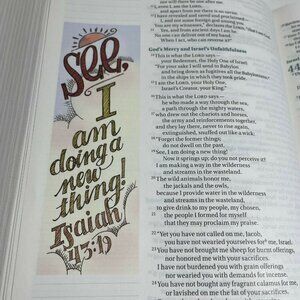 See,
I
am
doing a
new
thing!
Isaiah
43:19
God's Mercy and Israel's Unfaithfulness
This is what the LORD says—
your Redeemer, the Holy One of Israel:
"For your sake I will send to Babylon
and bring down as fugitives all the Babylonians,
in the ships in which they took pride.
I am the LORD, your Holy One,
Israel's Creator, your King."
This is what the LORD says—
he who made a way through the sea,
a path through the mighty waters,
who drew out the chariots and horses,
the army and reinforcements together,
and they lay there, never to rise again,
extinguished, snuffed out like a wick:
"Forget the former things;
do not dwell on the past.
See, I am doing a new thing!
Now it springs up; do you not perceive it?
I am making a way in the wilderness
and streams in the wasteland.
The wild animals honor me,
the jackals and the owls,
because I provide water in the wilderness
and streams in the wasteland,
to give drink to my people, my chosen,
the people I formed for myself
that they may proclaim my praise.
"Yet you have not called on me, Jacob,
you have not wearied yourselves for me, Israel.
You have not brought me sheep for burnt offerings,
nor honored me with your sacrifices.
I have not burdened you with grain offerings
nor wearied you with demands for incense.
You have not bought any fragrant calamus for me,
or lavished on me the fat of your sacrifices.